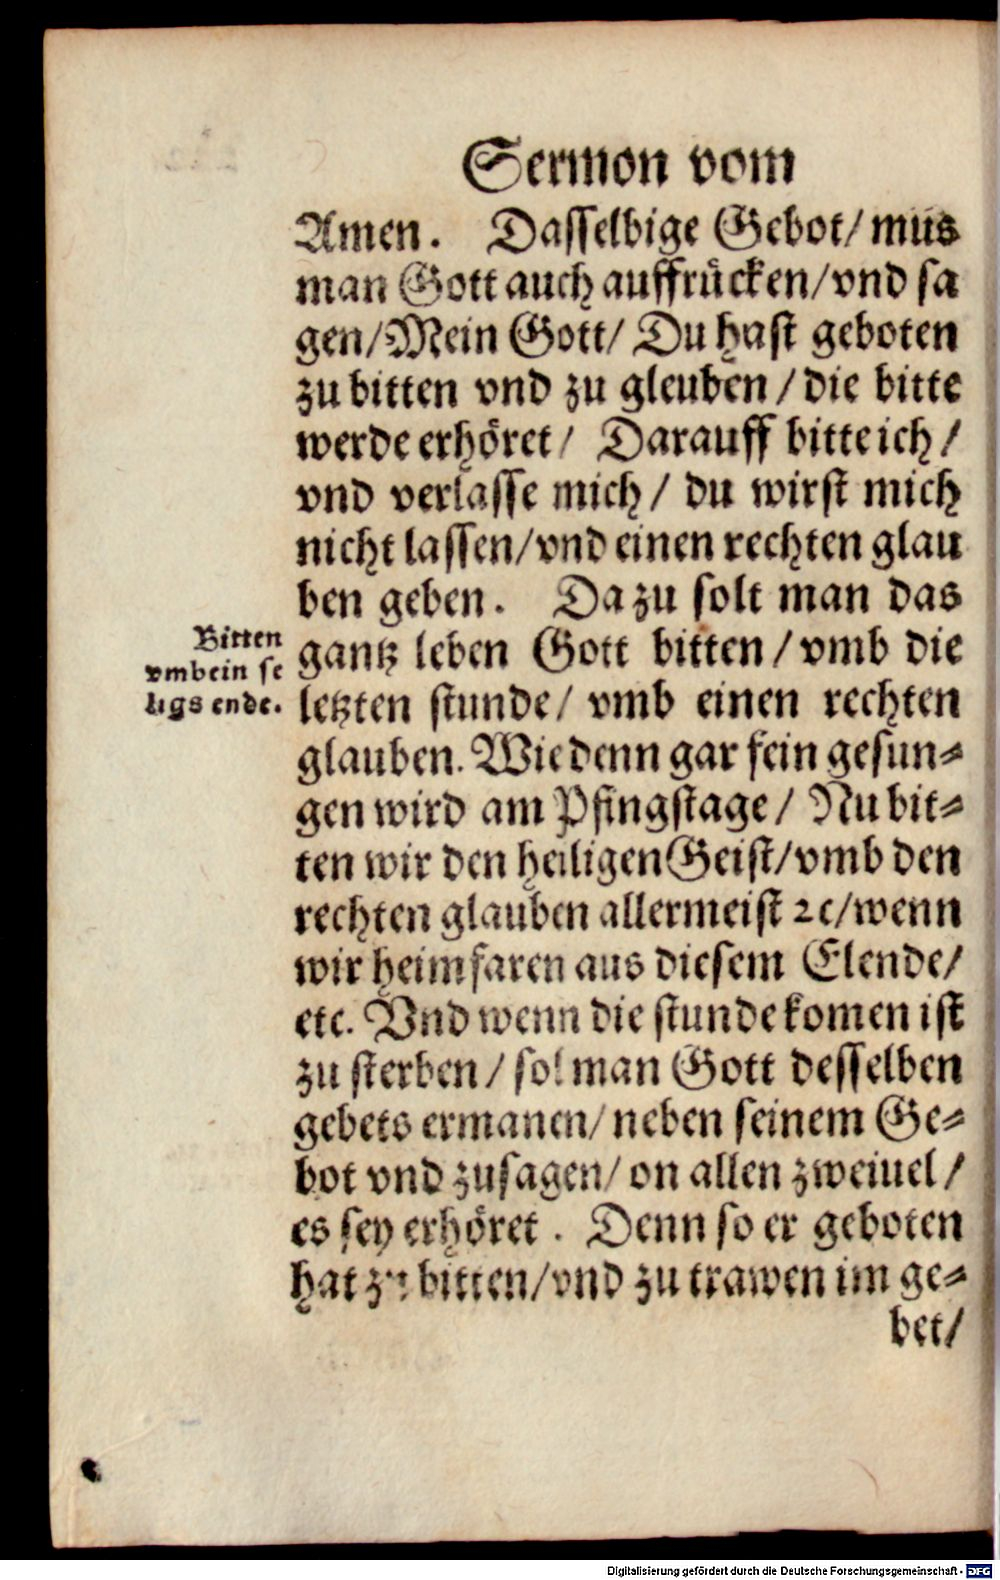 Sermon vom
Amen. Dasselbige Gebot/ mus
man Gott auch auffrücken/ vnd sa
gen/ Mein Gott/ Du hast geboten
zu bitten vnd zu gleuben/ die bitte
werde erhöret/ Darauff bitte ich/
vnd verlasse mich/ du wirst mich
nicht lassen/ vnd einen rechten glau
ben geben. Da zu solt man das
Bitten
vmb ein se
ligs ende.
gantz leben Gott bitten/ vmb die
letzten stunde/ vmb einen rechten
glauben. Wie denn gar fein gesun⸗
gen wird am Pfingstage/ Nu bit⸗
ten wir den heiligen Geist/ vmb den
rechten glauben allermeist ꝛc/ wenn
wir heimfaren aus diesem Elende/
etc. Vnd wenn die stunde komen ist
zu sterben/ sol man Gott desselben
gebets ermanen/ neben seinem Ge⸗
bot vnd zusagen/ on allen zweiuel/
es sey erhöret. Denn so er geboten
hat zu bitten/ vnd zu trawen im ge⸗
bet/
Digitalisierung gefördert durch die Deutsche Forschungsgemeinschaft - DFG